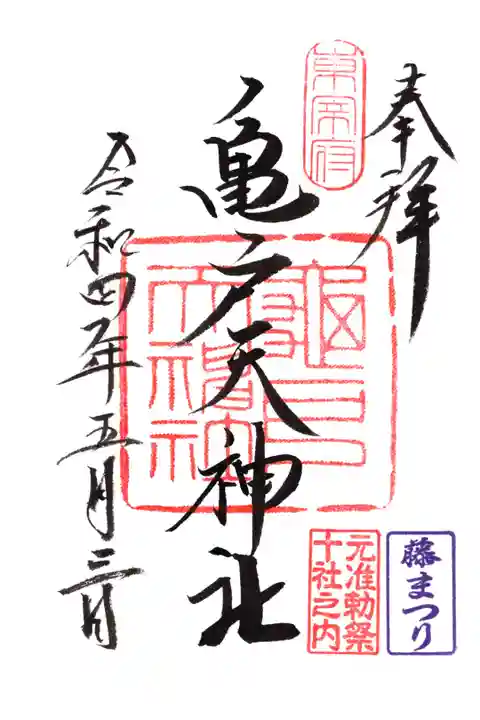 奉拝
東宰府
亀戸天神社
令和四年五月三日
元准勅祭
十社之内
藤まつり